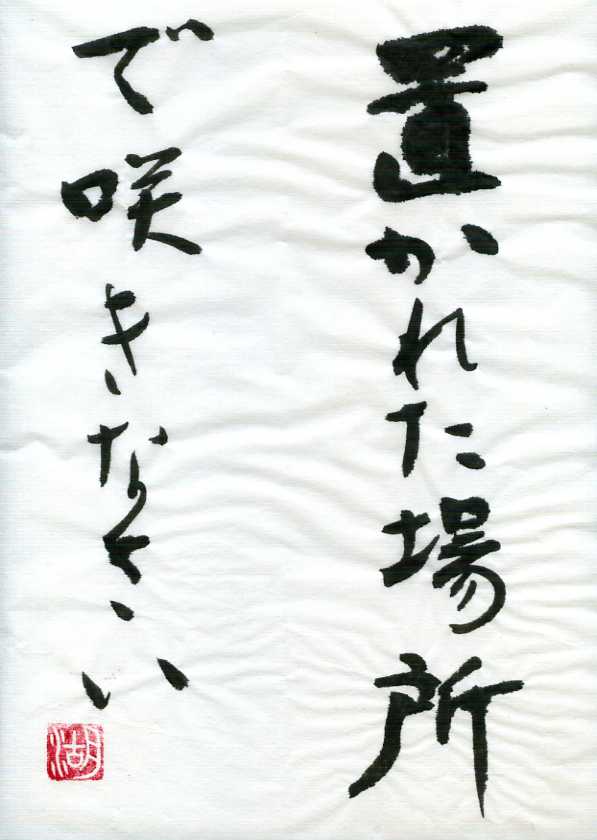 置かれた場所
で咲きなさい
湖